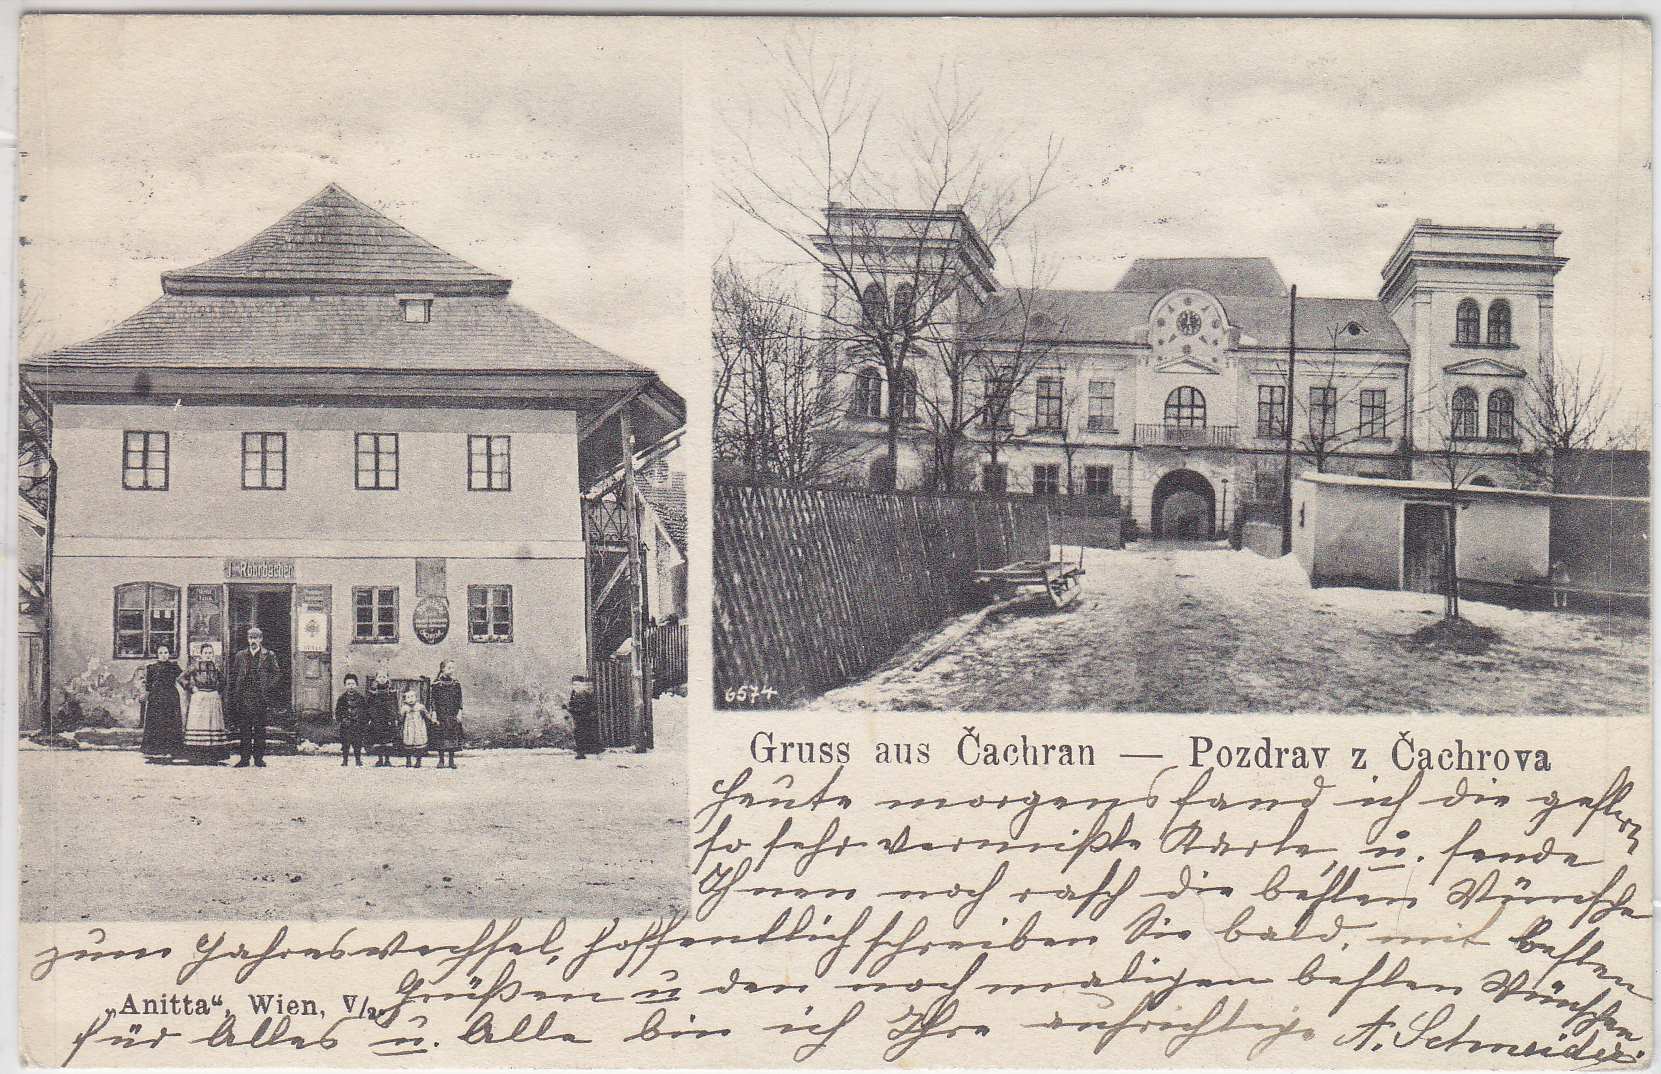 Rohrbacher
6574
Gruss aus Čachran — Pozdrav z Čachrova
Heute morgens fand ich die gestern
so sehr vermißte Karte, u. sende
Ihnen noch rasch die besten Wünsche
zum Jahreswechsel, hoffentlich schreiben Sie bald, mit besten
Grüßen u den noch maligen besten Wünschen
„Anitta“, Wien, V/2.
für Alles u. Alle bin ich Ihre aufrichtige A. Schneider.